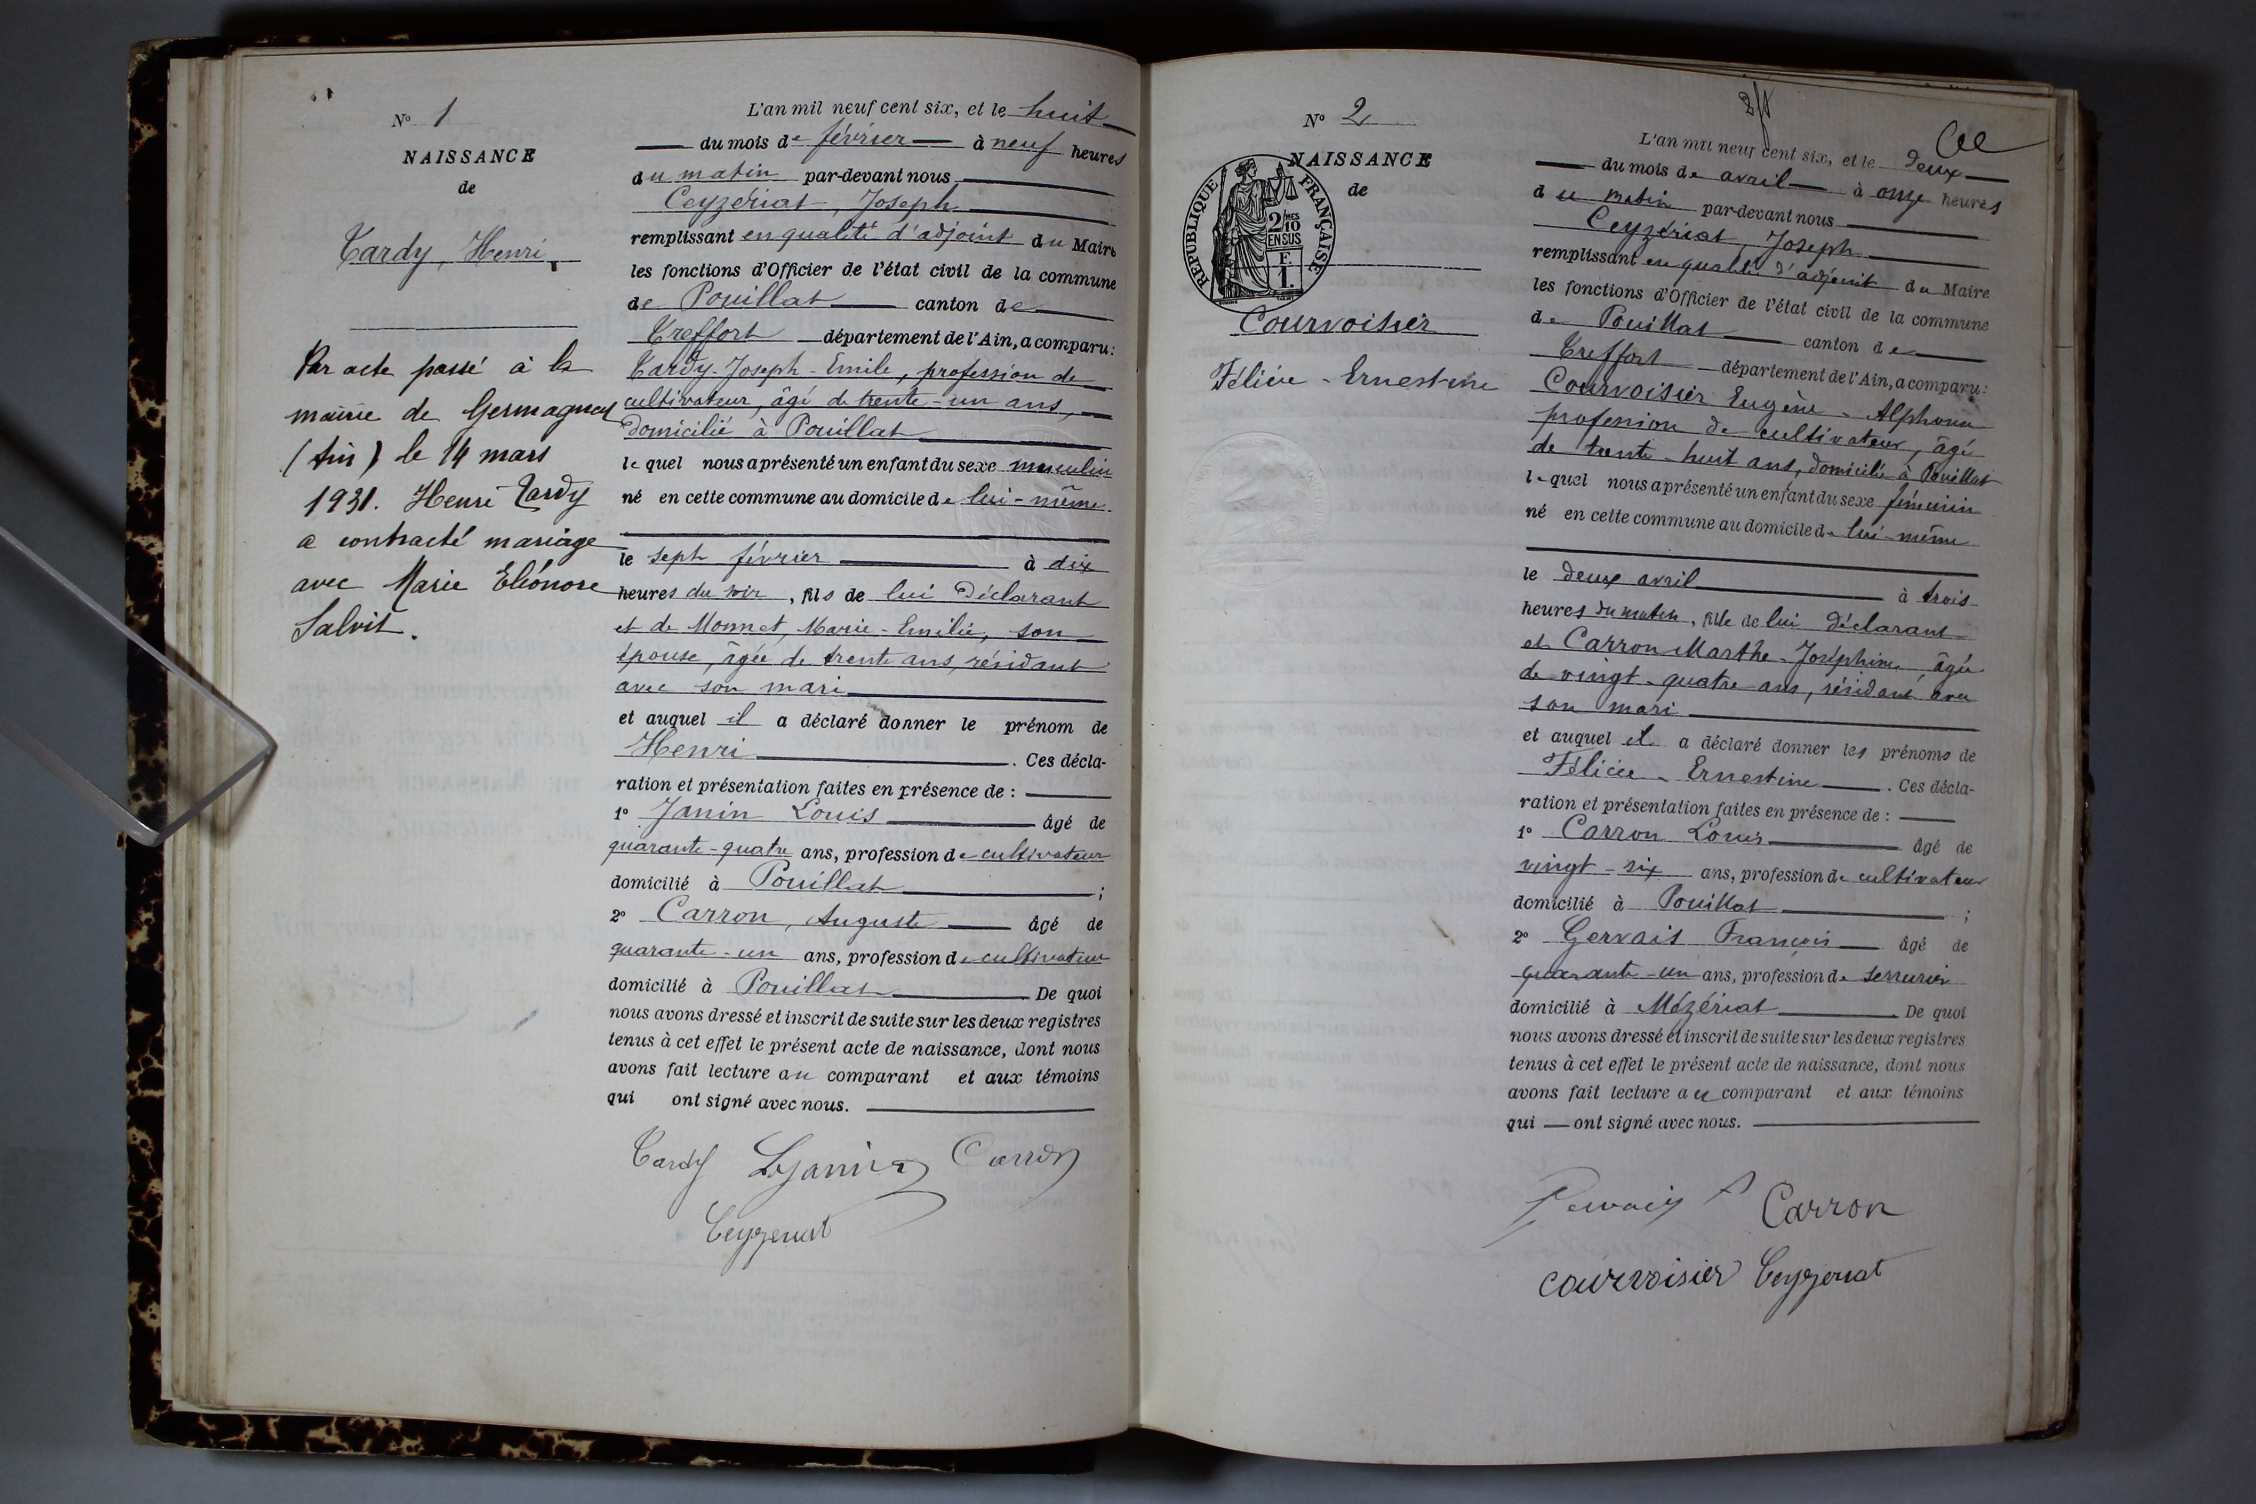 N° 1
NAISSANCE
de
Tardy, Henri
Par acte passé à la
mairie de Germagnat
(Ain) le 14 mars
1931. Henri Tardy
a contracté mariage
avec Marie Eléonore
Salvit.
L'an mil neuf cent six, et le huit
du mois de février à neuf heures
du matin par-devant nous
Ceyzériat, Joseph
remplissant en qualité d'adjoint du Maire
les fonctions d'Officier de l'état civil de la commune
de Pouillat canton de
Treffort département de l'Ain, a comparu:
Tardy Joseph-Emile, profession de
cultivateur, âgé de trente-un ans,
domicilié à Pouillat
lequel nous a présenté un enfant du sexe masculin
né en cette commune au domicile de lui-même.
le sept février à dix
heures du soir, fils de lui déclarant
et de Monnet, Marie-Emilie, son
épouse, âgée de trente ans, résidant
avec son mari
et auquel il a déclaré donner le prénom de
Henri. Ces décla-
ration et présentation faites en présence de :
1° Janin Louis âgé de
quarante-quatre ans, profession de cultivateur
domicilié à Pouillat ;
2° Carron, Auguste âgé de
quarante-un ans, profession de cultivateur
domicilié à Pouillat De quoi
nous avons dressé et inscrit de suite sur les deux registres
tenus à cet effet le présent acte de naissance, dont nous
avons fait lecture au comparant et aux témoins
qui ont signé avec nous.
Tardy L Janin Carron
Ceyzeriat
N° 2
NAISSANCE
de
RÉPUBLIQUE FRANÇAISE
2/10 MES
EN SUS
F.
1.
Courvoisier
Félicie-Ernestine
L'an mil neuf cent six, et le deux
du mois de avril à onze heures
du matin par-devant nous
Ceyzériat, Joseph
remplissant en qualité d'adjoint du Maire
les fonctions d'Officier de l'état civil de la commune
de Pouillat canton de
Treffort département de l'Ain, a comparu:
Courvoisier Eugène-Alphonse
profession de cultivateur, âgé
de trente-huit ans, domicilié à Pouillat
lequel nous a présenté un enfant du sexe féminin
né en cette commune au domicile de lui-même
le deux avril à trois
heures du matin, fille de lui déclarant
et Carron Marthe-Joséphine âgée
de vingt-quatre ans, résidant avec
son mari
et auquel il a déclaré donner les prénoms de
Félicie-Ernestine. Ces décla-
ration et présentation faites en présence de :
1° Carron Louis âgé de
vingt-six ans, profession de cultivateur
domicilié à Pouillat ;
2° Gervais François âgé de
quarante-un ans, profession de serrurier
domicilié à Mézériat De quoi
nous avons dressé et inscrit de suite sur les deux registres
tenus à cet effet le présent acte de naissance, dont nous
avons fait lecture au comparant et aux témoins
qui ont signé avec nous.
Gervais F Carron
Courvoisier Ceyzeriat